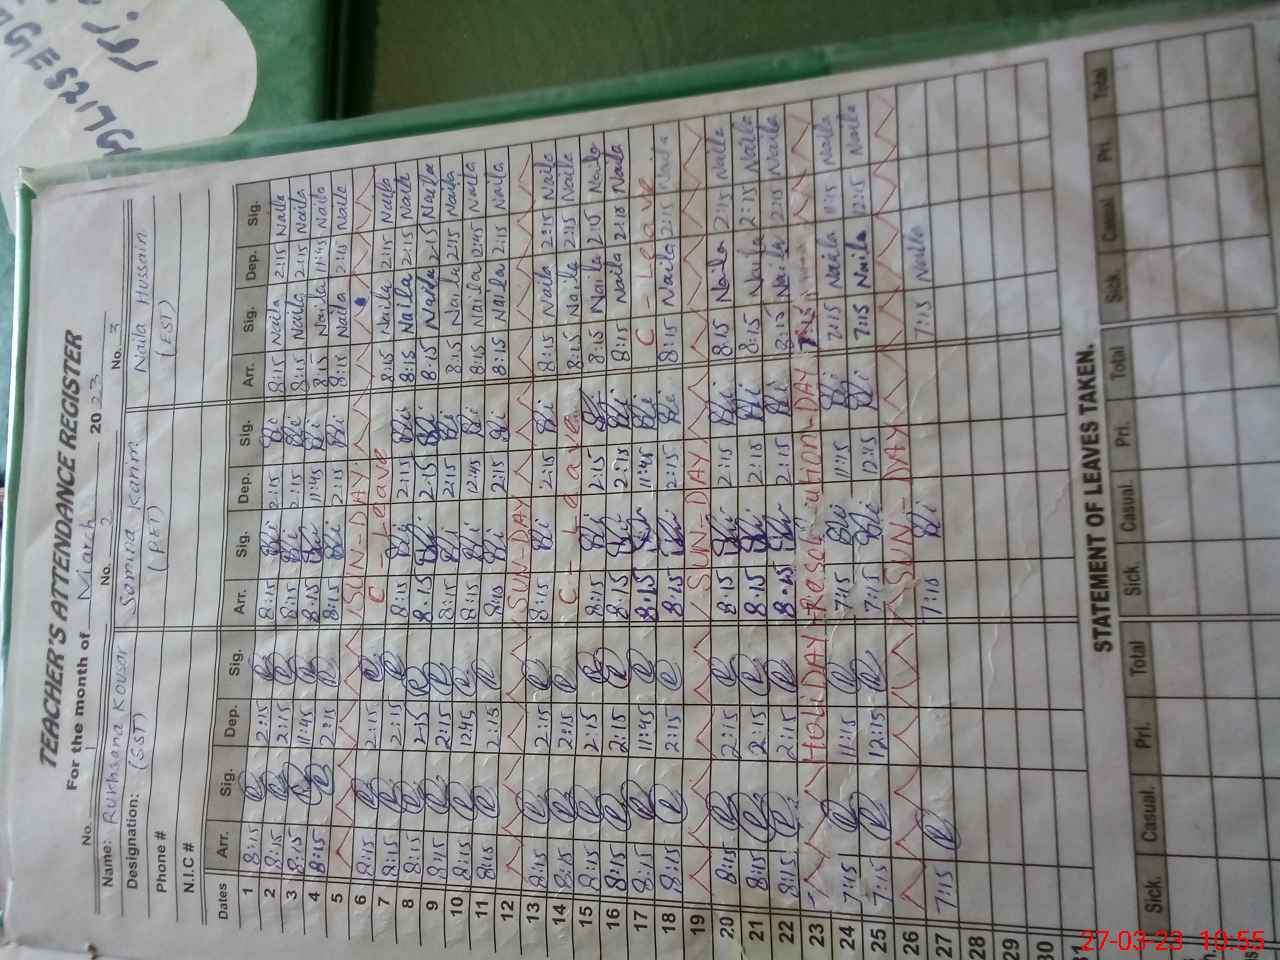 GGES217G
TEACHER'S ATTENDANCE REGISTER
For the month of March 2023
No. 1 No. 2 No. 3
Name: Rukhsana Kousar Samina Karim Naila Hussain
Designation: (SST) (PET) (EST)
Phone #
N.I.C #
Dates Arr. Sig. Dep. Sig. Arr. Sig. Dep. Sig. Arr. Sig. Dep. Sig.
1 8:15 2:15 8:15 2:15 8:15 Naila 2:15 Naila
2 8:15 2:15 8:15 2:15 8:15 Naila 2:15 Naila
3 8:15 11:45 8:15 11:45 8:15 Naila 11:45 Naila
4 8:15 2:15 8:15 2:15 8:15 Naila 2:15 Naila
5 SUN-DAY
6 8:15 2:15 C-Leave 8:15 Naila 2:15 Naila
7 8:15 2:15 8:15 2:15 8:15 Naila 2:15 Naila
8 8:15 2:15 8:15 2:15 8:15 Naila 2:15 Naila
9 8:15 2:15 8:15 2:15 8:15 Naila 2:15 Naila
10 8:15 12:45 8:15 12:45 8:15 Naila 12:45 Naila
11 8:15 2:15 8:15 2:15 8:15 Naila 2:15 Naila
12 SUN-DAY
13 8:15 2:15 8:15 2:15 8:15 Naila 2:15 Naila
14 8:15 2:15 C-Leave 8:15 Naila 2:15 Naila
15 8:15 2:15 8:15 2:15 8:15 Naila 2:15 Naila
16 8:15 2:15 8:15 2:15 8:15 Naila 2:15 Naila
17 8:15 11:45 8:15 11:45 C-Leave
18 8:15 2:15 8:15 2:15 8:15 Naila 2:15 Naila
19 SUN-DAY
20 8:15 2:15 8:15 2:15 8:15 Naila 2:15 Naila
21 8:15 2:15 8:15 2:15 8:15 Naila 2:15 Naila
22 8:15 2:15 8:15 2:15 8:15 Naila 2:15 Naila
23 HOLIDAY Resolution-DAY
24 7:15 11:15 7:15 11:15 7:15 Naila 11:15 Naila
25 7:15 12:15 7:15 12:15 7:15 Naila 12:15 Naila
26 SUN-DAY
27 7:15 7:15 7:15 Naila
28
29
30
31
STATEMENT OF LEAVES TAKEN.
Sick. Casual. Pri. Total Sick. Casual. Pri. Total Sick. Casual Pri. Total
27-03-23 10:55